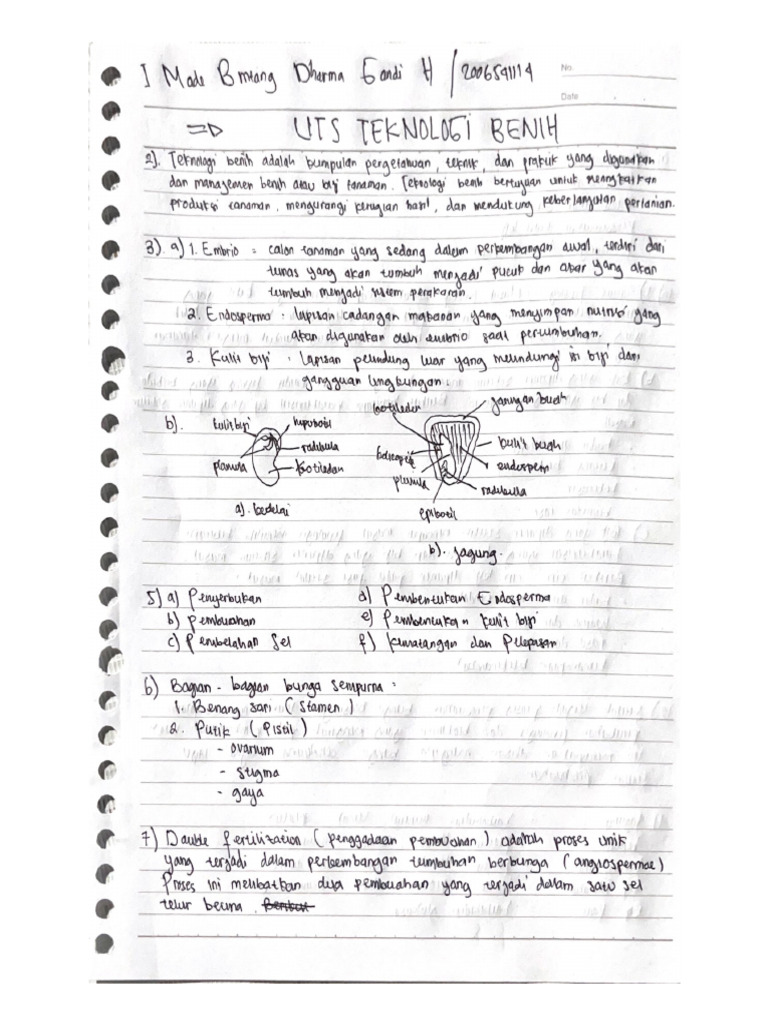 I Made Bintang Dharma Gandi H / 2006541114
No.
Date
=> UTS TEKNOLOGI BENIH
2). Teknologi benih adalah kumpulan pengetahuan, teknik, dan praktik yang digunakan
dan managemen benih atau biji tanaman. Teknologi benih bertujuan untuk meningkatkan
produksi tanaman, mengurangi kerugian hasil, dan mendukung keberlanjutan pertanian.
3). a) 1. Embrio : calon tanaman yang sedang dalam perkembangan awal, terdiri dari
tunas yang akan tumbuh menjadi pucuk dan akar yang akan
tumbuh menjadi sistem perakaran.
2. Endosperma : lapisan cadangan makanan yang menyimpan nutrisi yang
akan digunakan oleh embrio saat pertumbuhan.
3. Kulit biji : Lapisan pelindung luar yang melindungi isi biji dari
gangguan lingkungan.
b). kulit biji hipokotil
radikula
plumula kotiledon
a). kedelai
kotiledon jaringan buah
kulit buah
endosperm
plumula
radikula
epikotil
b). jagung.
5) a) Penyerbukan d) Pembentukan Endosperma
b) pembuahan e) Pembentukan kulit biji
c) Pembelahan Sel f) Kematangan dan Pelepasan
6) Bagian - bagian bunga sempurna :
1. Benang sari (Stamen)
2. Putik (Pistil)
- ovarium
- stigma
- gaya
7) Double fertilization (penggadaan pembuahan) adalah proses unik
yang terjadi dalam perkembangan tumbuhan berbunga (angiospermae)
Proses ini melibatkan dua pembuahan yang terjadi dalam satu sel
telur betina. Berikut